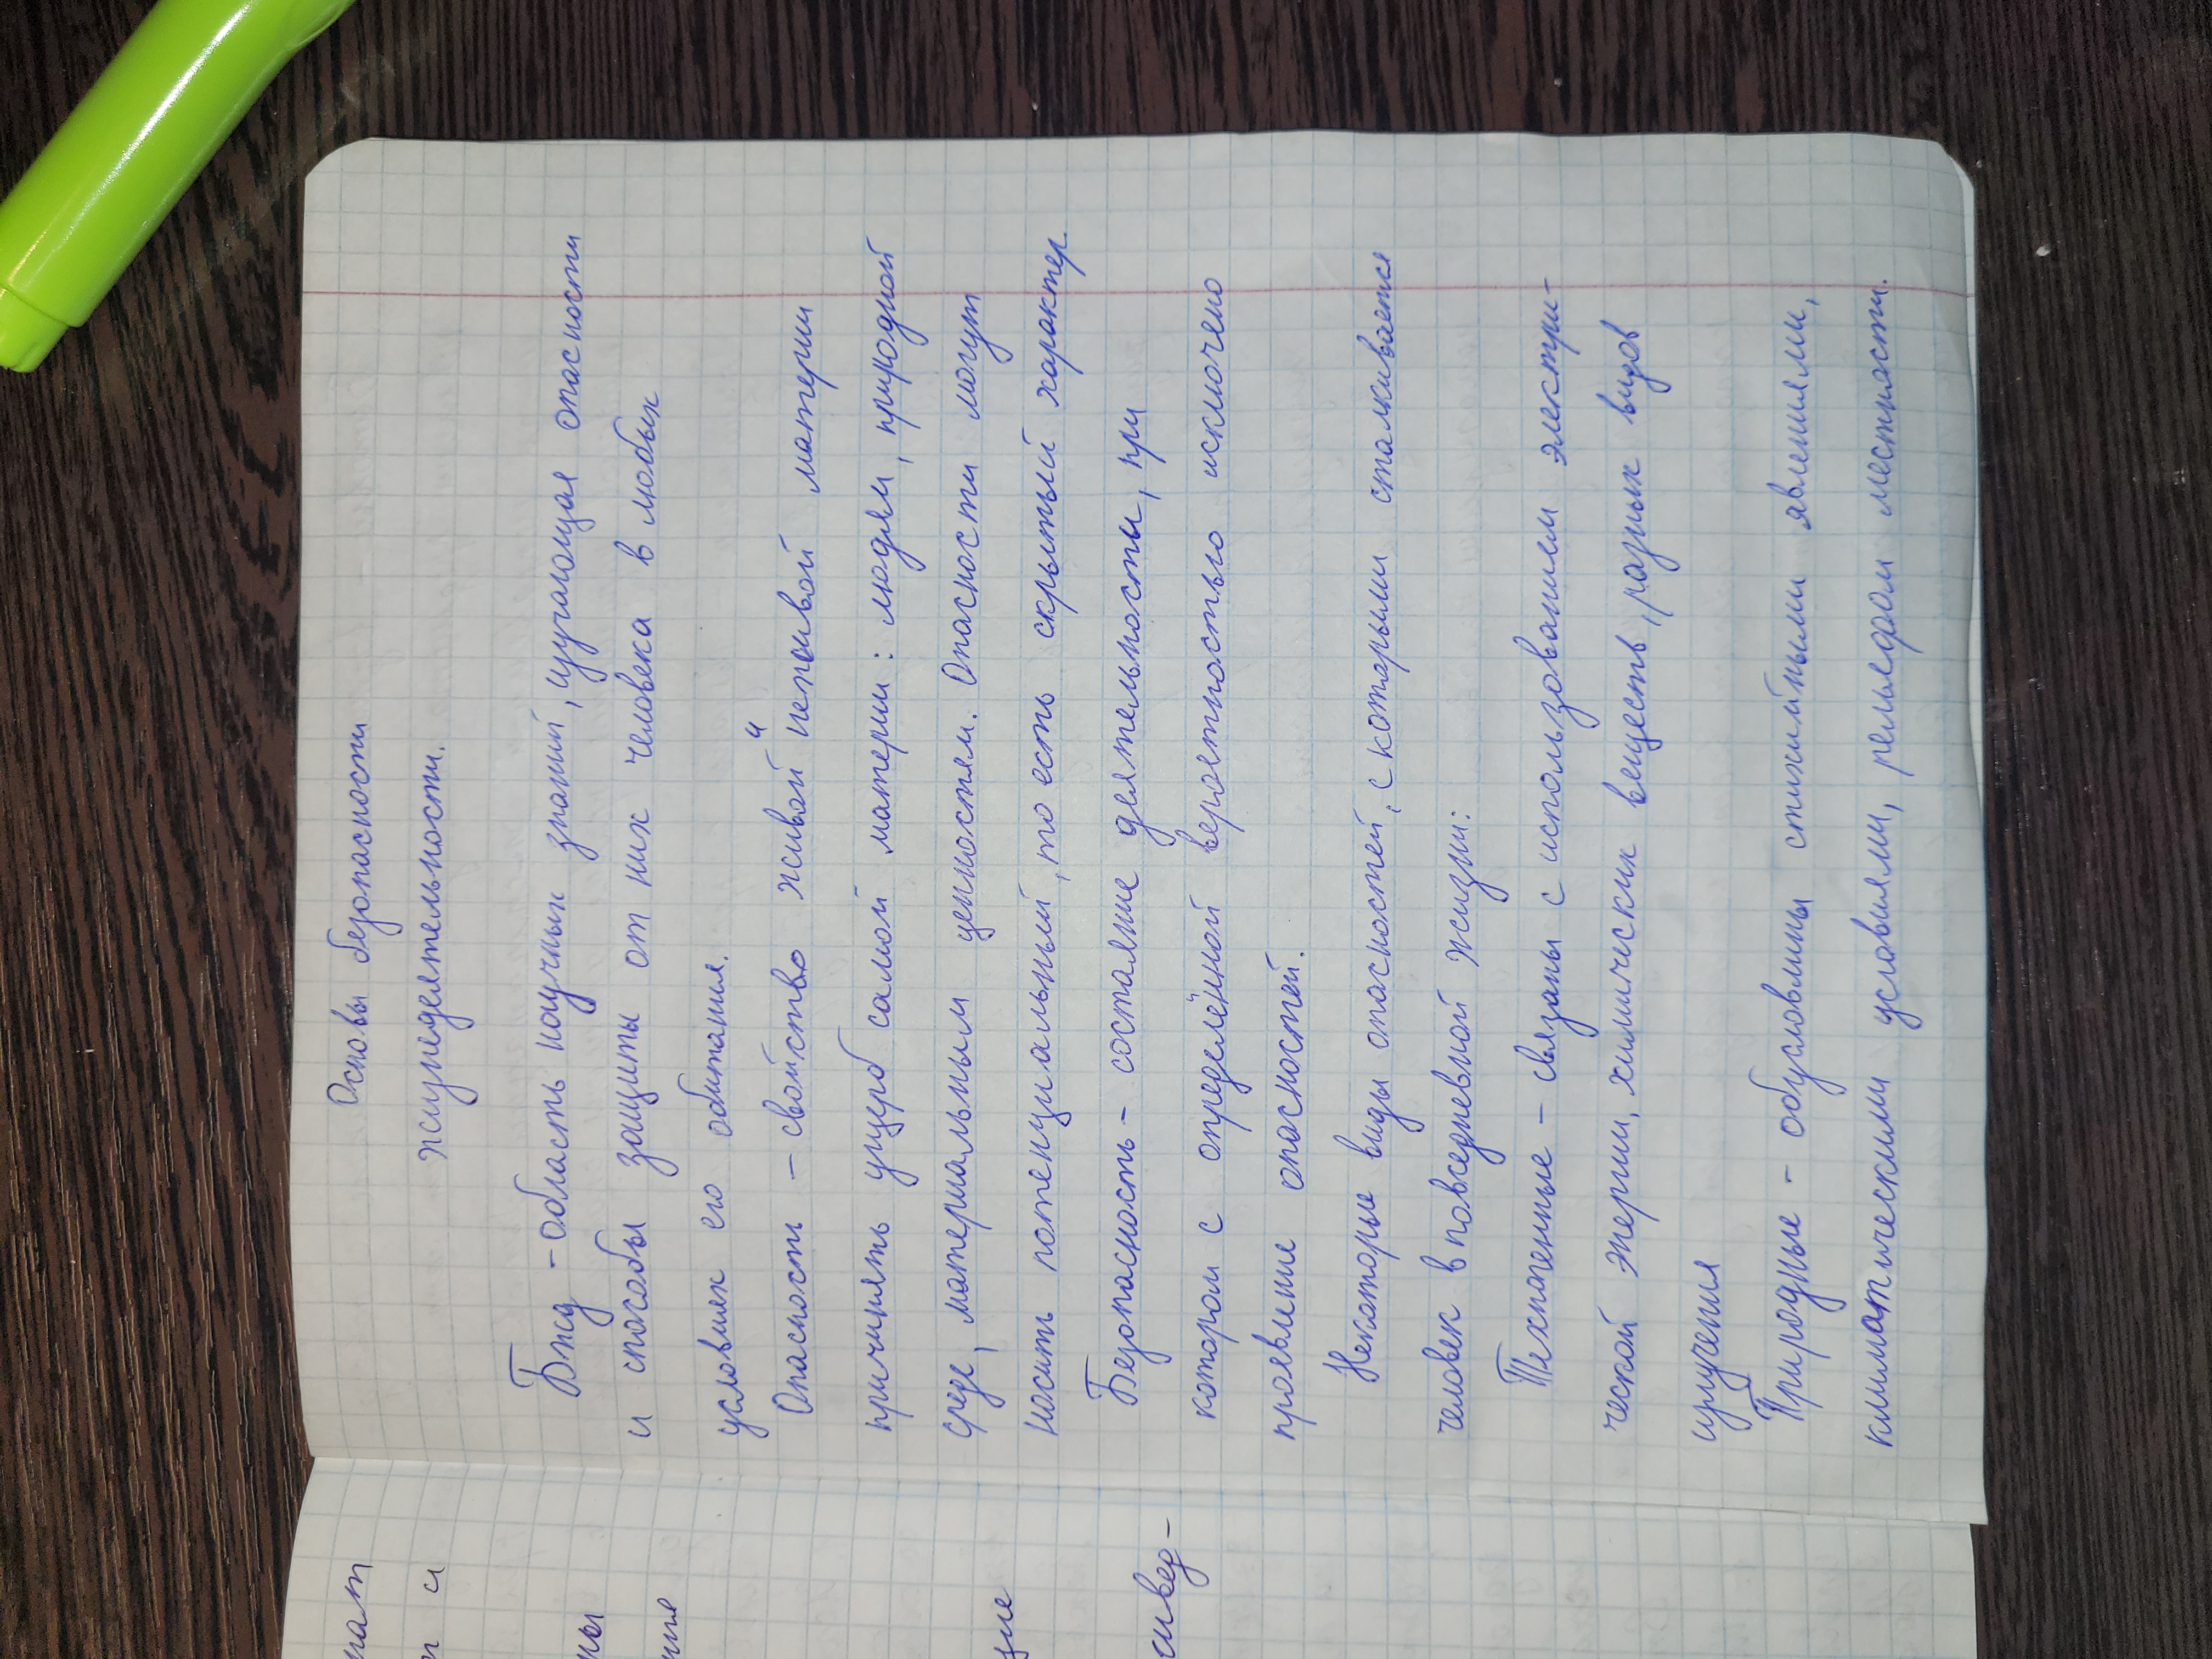 Основы безопасности
жизнедеятельности.
Бжд - область научных знаний, изучающая опасности
и способы защиты от них человека в любых
условиях его обитания.
Опасности - свойство живой и неживой материи
причинять ущерб самой материи: людям, природной
среде, материальным ценностям. Опасности могут
носить потенциальный, то есть скрытый характер.
Безопасность - состояние деятельности, при
котором с определённой вероятностью исключено
проявление опасностей.
Некоторые виды опасностей, с которыми сталкивается
человек в повседневной жизни:
Техногенные - связаны с использованием электри-
ческой энергии, химических веществ, разных видов
излучения
Природные - обусловлены стихийными явлениями,
климатическими условиями, рельефом местности.